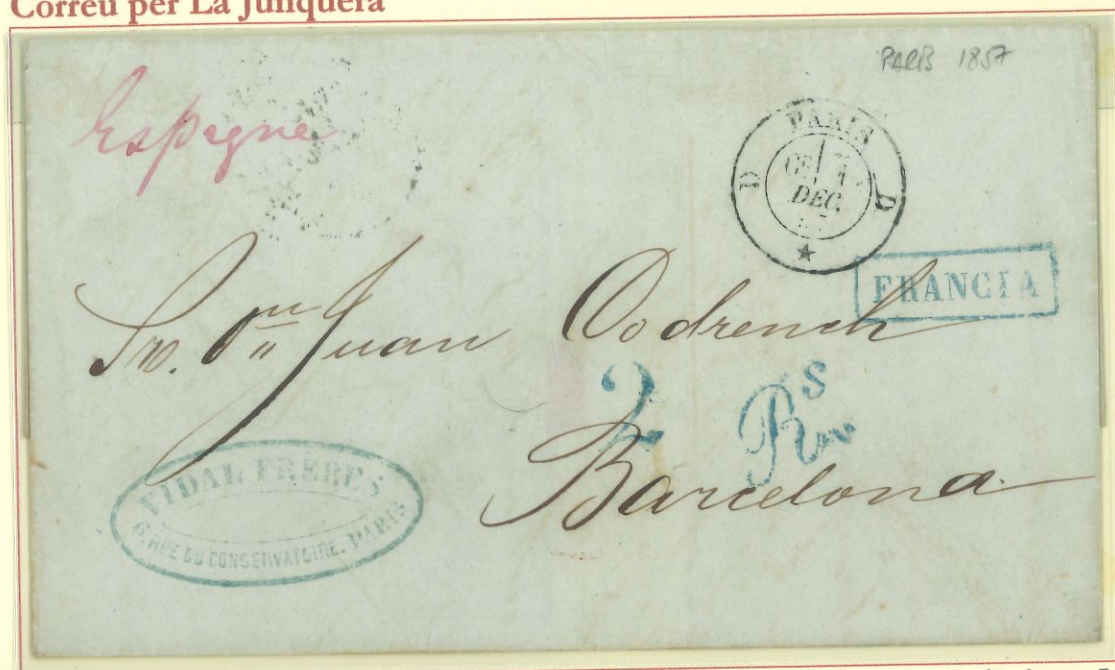 Correu per La Junquera
PARIS 1857
Espagne
PARIS
DEC.
D D
FRANCIA
Sr. Dn Juan Codrench
2 Rs
Barcelona.
VIDAL FRÈRES
6, RUE DU CONSERVATOIRE, PARIS